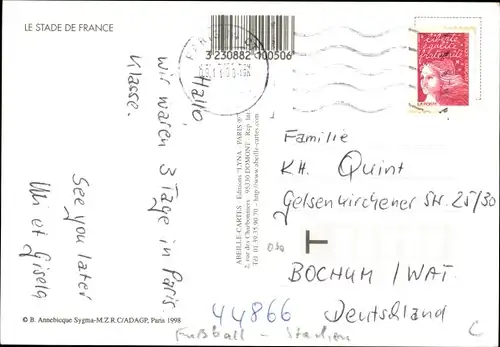 LE STADE DE FRANCE
3 230882 100506
PARIS
liberté
égalité
fraternité
LA POSTE
Hallo,
wir waren 3 Tage in Paris.
Klasse.
See you later
Uli et Gisela
ABEILLE-CARTES - Editions "LYNA - PARIS ®"
2, rue des Charbonniers - 95330 DOMONT - Rep. Int.
Tél 01.39.35.90.70 - http://www.abeille-cartes.com
Familie
KH. Quint
Gelsenkirchener Str. 25/30
T
BOCHUM / WAT.
Deutschland
44866
Fußball - Stadien
© B. Annebicque Sygma-M.Z.R.C/ADAGP, Paris 1998